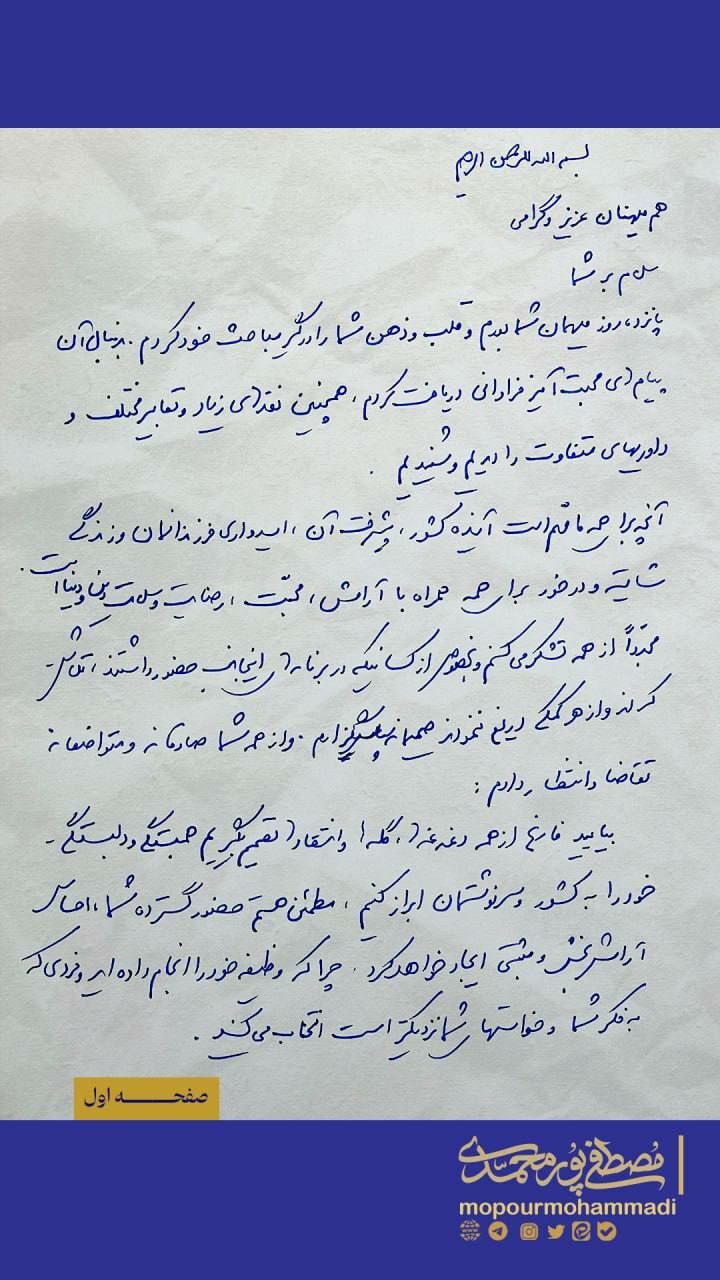 بسم الله الرحمن الرحیم
هم میهنان عزیز و گرامی
سلام بر شما
پانزده روز میهمان شما بودم و قلب و ذهن شما را درگیر مباحث خود کردم. بدنبال آن
پیام های محبت آمیز فراوانی دریافت کردم، همچنین نقدهای زیاد و تعابیر مختلف و
داوریهای متفاوت را دیدیم و شنیدیم.
آنچه برای همه ما مهم است آینده کشور، پیشرفت آن، امیدواری فرزندانمان و زندگی
شایسته و درخور برای همه همراه با آرامش، محبّت، رضایت و سلامت دین و دنیا است.
مجدّداً از همه تشکر می کنم و بخصوص از کسانیکه در برنامه های اینجانب حضور داشتند، تلاش
کردند و از هر کمکی دریغ ننمودند صمیمانه سپاسگزارم. و از همه شما صادقانه و متواضعانه
تقاضا و انتظار دارم:
بیایید فارغ از همه دغدغه ها، گله ها و انتقادها تصمیم بگیریم همبستگی و دلبستگی
خود را به کشور و سرنوشتمان ابراز کنیم، مطمئن هستم حضور گسترده شما، احساس
آرامش بخش و مثبتی ایجاد خواهد کرد. چرا که وظیفه خود را انجام داده اید و فردی که
به فکر شما و خواستهای شما نزدیکتر است انتخاب می کنید.
صفحه اول
مصطفی پورمحمدی
mopourmohammadi